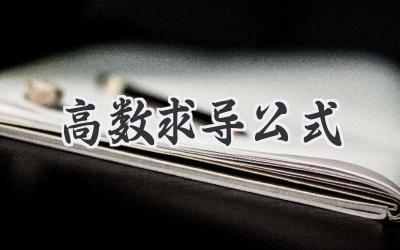 高数求导公式